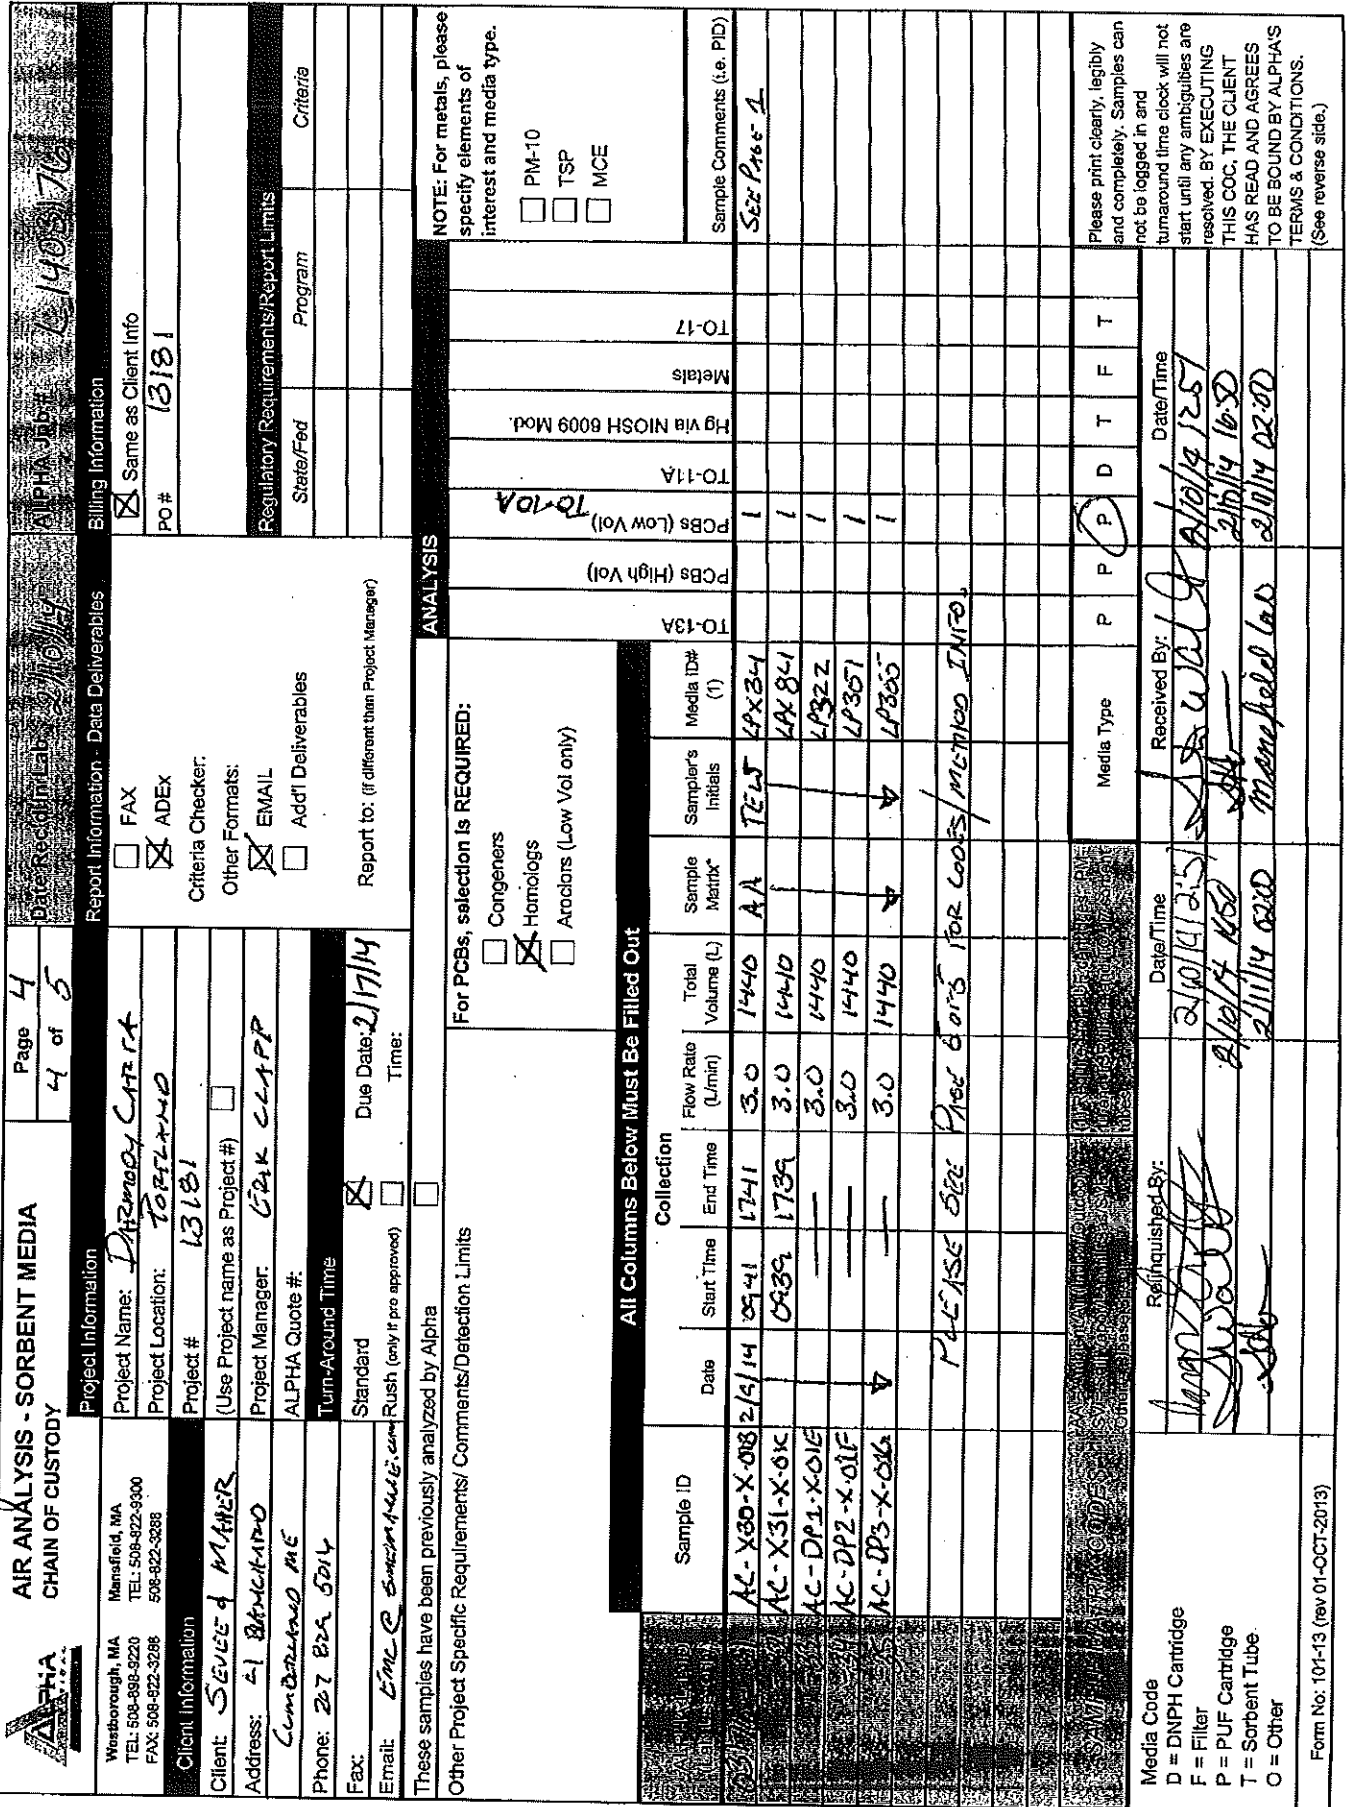 ALPHA
AIR ANALYSIS - SORBENT MEDIA
CHAIN OF CUSTODY
Page 4
4 of 5
Date Rec'd in Lab:
ALPHA Job #:
Westborough, MA
TEL: 508-898-9220
FAX: 508-822-3288
Mansfield, MA
TEL: 508-822-9300
508-822-3288
Client Information
Client: SEVEE & MAHER
Address: 4 BLANCHARD
CUMBERLAND ME
Phone: 207 829 5016
Fax:
Email:
Project Information
Project Name: DARMODY CARTA
Project Location: PORTLAND
Project # 13181
(Use Project name as Project #) ☐
Project Manager: ERIK CLAPP
ALPHA Quote #:
Turn-Around Time
Standard ☒ Due Date: 2/17/14
Rush (only if pre approved) ☐ Time:
Report Information - Data Deliverables
☐ FAX
☒ ADEx
Criteria Checker:
Other Formats:
☒ EMAIL
☐ Add'l Deliverables
Report to: (if different than Project Manager)
Billing Information
☒ Same as Client Info
PO # 13181
Regulatory Requirements/Report Limits
State/Fed Program Criteria
These samples have been previously analyzed by Alpha ☐
Other Project Specific Requirements/ Comments/Detection Limits
For PCBs, selection is REQUIRED:
☐ Congeners
☒ Homologs
☐ Aroclors (Low Vol only)
ANALYSIS
TO-13A
PCBs (High Vol)
PCBs (Low Vol) TO-10A
TO-11A
Hg via NIOSH 6009 Mod.
Metals
TO-17
NOTE: For metals, please
specify elements of
interest and media type.
☐ PM-10
☐ TSP
☐ MCE
All Columns Below Must Be Filled Out
Collection
Sample ID Date Start Time End Time Flow Rate (L/min) Total Volume (L) Sample Matrix* Sampler's Initials Media ID# (1) Sample Comments (i.e. PID)
AC-X30-X-01B 2/9/14 0941 1741 3.0 1440 AA TEW LPX34 1 SEE PAGE 1
AC-X31-X-01C 0939 1739 3.0 1440 LPX84 1
AC-DP1-X-01E — 3.0 1440 LP322 1
AC-DP2-X-01F — 3.0 1440 LP351 1
AC-DP3-X-01G — 3.0 1440 LP355 1
PLEASE SEE PAGE 6 OF 5 FOR CODES/METHOD INFO.
Media Code
D = DNPH Cartridge
F = Filter
P = PUF Cartridge
T = Sorbent Tube
O = Other
Media Type P P P D T F T
Relinquished By: Date/Time Received By: Date/Time
2/10/14 1251 2/10/14 1251
2/10/14 1650 2/10/14 16:50
2/11/14 0200 Mansfield Lab 2/11/14 02:00
Please print clearly, legibly
and completely. Samples can
not be logged in and
turnaround time clock will not
start until any ambiguities are
resolved. BY EXECUTING
THIS COC, THE CLIENT
HAS READ AND AGREES
TO BE BOUND BY ALPHA'S
TERMS & CONDITIONS.
(See reverse side.)
Form No: 101-13 (rev 01-OCT-2013)